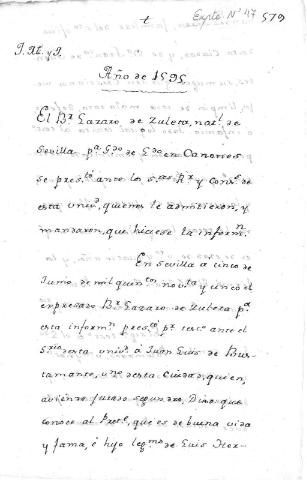 t
Expte Nº 47 579
Año de 1595
El Br Lazaro de Zuleta, natl. de
Sevilla pa. Gdo. de Gdo. en Canones
se presto. ante los sres Rr. y Consa. de
esta univd, quienes le admitieron, y
mandaron, que hiciese la informn.
En Sevilla a cinco de
Junio de mil quinto. novta y cinco el
expresado Br Lazaro de Zuleta pa.
esta informn. presto. pr. tesco. ante el
Srio desta univd. à Juan Luis de Bus-
tamante, vno desta Ciudad, quien,
aviendo jurado segun dro. Dixo que
conoce al Preste. que es de buena vida
y fama, è hijo legmo. de Luis Hor-